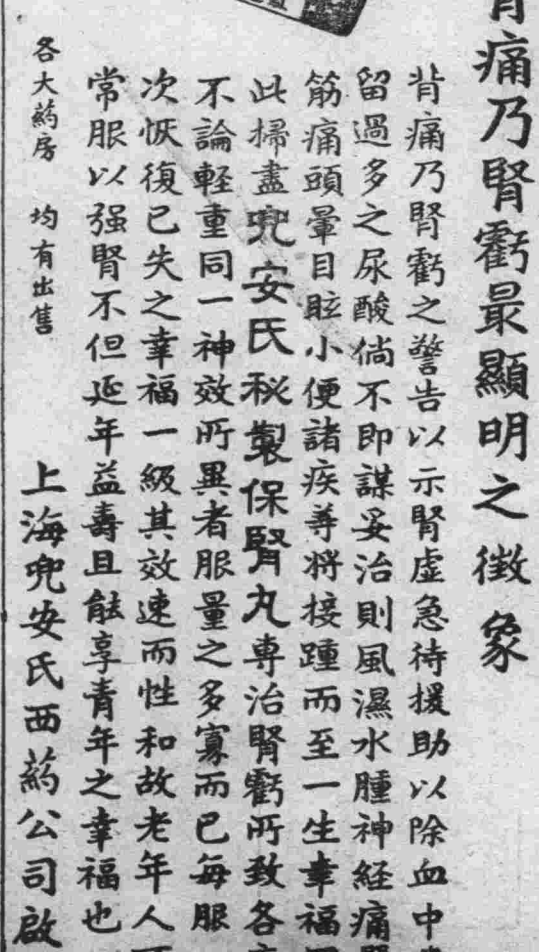 背痛乃腎虧最顯明之徵象
背痛乃腎虧之警告以示腎虛急待援助以除血中
留過多之尿酸倘不即謀妥治則風濕水腫神経痛
筋痛頭暈目眩小便諸疾等將接踵而至一生幸福
此掃盡兜安氏秘製保腎丸専治腎虧所致各
不論輕重同一神效所異者服量之多寡而已每服
次恢復已失之幸福一級其效速而性和故老年人
常服以强腎不但延年益壽且能享青年之幸福也
各大葯房 均有出售
上海兜安氏西葯公司啟